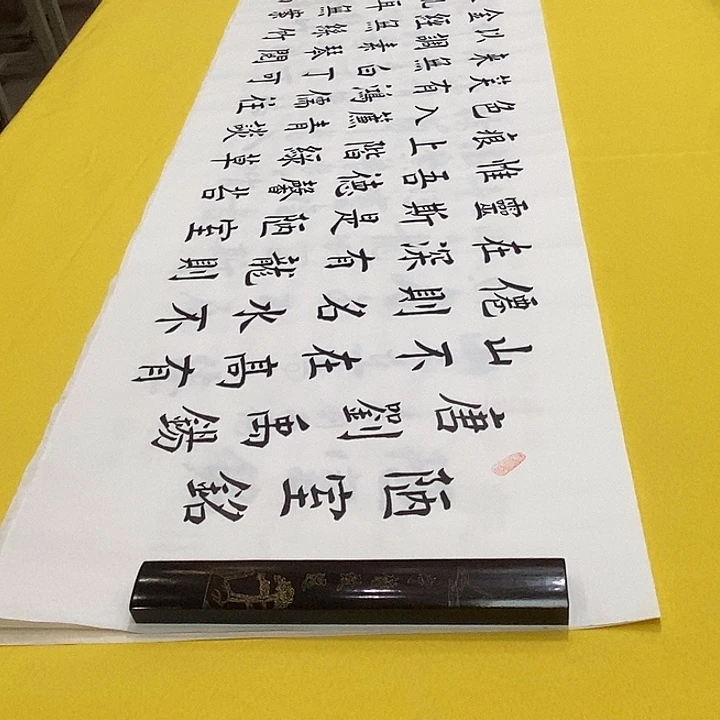 陋室銘
唐劉禹錫
山不在高有
僊則名水不
在深有龍則
靈斯是陋室
惟吾德馨苔
痕上階綠草
色入簾青談
笑有鴻儒往
來無白丁可
以調素琴閱
金經無絲竹